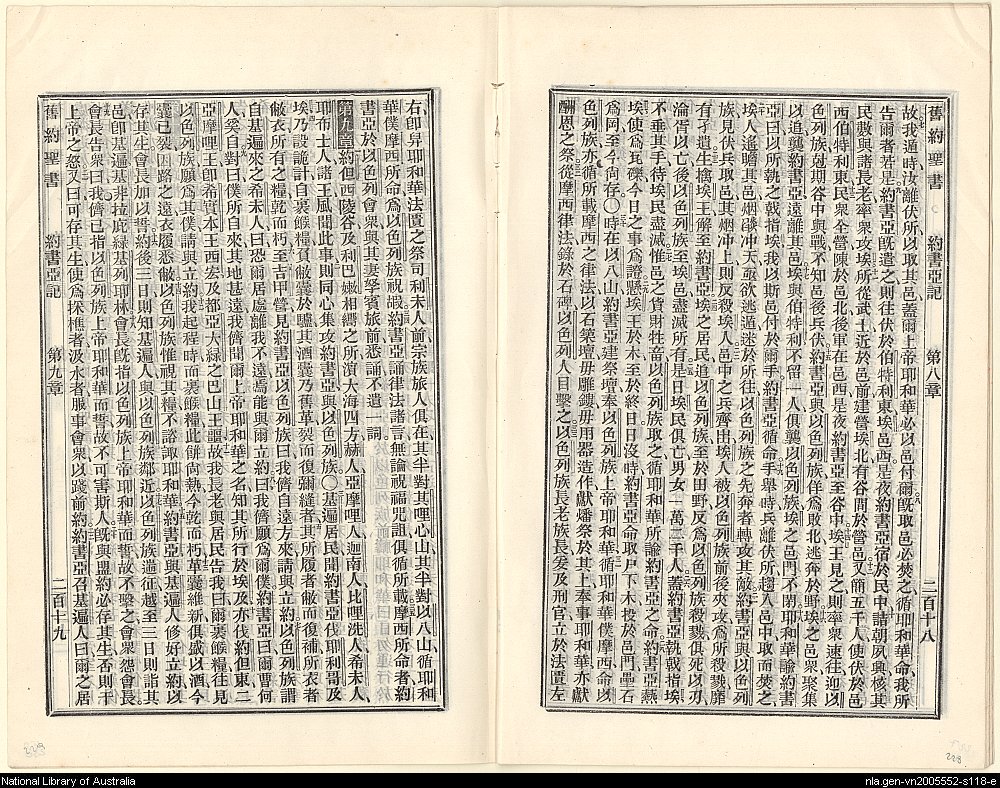 舊約聖書 約書亞記 第八章 二百十八
故我適時汝離伏所以取其邑蓋爾上帝耶和華必以邑付爾既取邑必焚之循耶和華命我所
告爾者若是約書亞既遣之則往伏於伯特利東埃邑西是夜約書亞宿於民中詰朝夙興核其
民數與諸長老率衆攻埃所從武士近於邑前建營埃北有谷間於營邑又簡五千人使伏於邑
西伯特利東民衆全營陳於邑北後軍在邑西是夜約書亞至谷中埃王見之則率衆速往迎以
色列族剋期谷中與戰不知邑後兵伏約書亞與以色列族佯爲敗北逃奔於野埃之邑衆聚集
以追襲約書亞遠離其邑埃與伯特利不留一人俱襲以色列族埃之邑門不閉耶和華諭約書
亞曰以所執之戟指埃我以斯邑付於爾手約書亞循命手舉時兵離伏所趨入邑中取而焚之
埃人遙瞻其邑烟燄沖天亟欲逃遁迷於所往以色列族之先奔者轉攻其敵約書亞與以色列
族見伏兵取邑其烟沖上則反殺埃人邑中之兵齊出埃人被以色列族前後夾攻爲所殺戮靡
有孑遺生擒埃王解至約書亞埃之居民追以色列族至於田野反爲以色列族殺戮俱死以刃
淪胥以亡後以色列族至埃邑盡滅所有是日埃民俱亡男女一萬二千人蓋約書亞執戟指埃
不垂其手待埃民盡滅惟邑之貨財牲畜以色列族取之循耶和華所諭約書亞之命約書亞爇
埃使爲瓦礫今日之事爲證懸埃王於木至於終日日沒時約書亞命取尸下木投於邑門壘石
爲岡至今尚存〇時在以八山約書亞建祭壇奉以色列族上帝耶和華循耶和華僕摩西命以
色列族亦循所載摩西之律法以石築壇毋雕鏤毋用器造作獻燔祭於其上奉事耶和華亦獻
酬恩之祭從摩西律法錄於石碑以色列人目擊之以色列族長老族長及刑官立於法匱左
舊約聖書 約書亞記 第九章 二百十九
右卽舁耶和華法匱之祭司利未人前宗族旅人俱在其半對其哩心山其半對以八山循耶和
華僕摩西所命爲以色列族祝嘏約書亞誦律法諸言無論祝福咒詛俱循所載摩西所命者約
書亞於以色列會衆與其妻孥賓旅前悉誦不遺一詞
第九章約但西陵谷及利巴嫩相嚮之所濱大海四方赫人亞摩哩人迦南人比哩洗人希未人
耶布士人諸王風聞此事則同心集攻約書亞與以色列族〇基遍居民聞約書亞伐耶利哥及
埃乃設詭計自裹餱糧負敝囊於驢其酒囊乃舊革裂而復彌縫者其所履者敝而復補所衣者
敝衣所有之糧乾而朽至吉甲營見約書亞以色列族曰我儕自遠方來請與立約以色列族謂
自基遍來之希未人曰恐爾居處離我不遠焉能與爾立約曰我儕願爲爾僕約書亞曰爾曹何
人奚自對曰僕所自來其地甚遠我儕聞爾上帝耶和華之名知其所行於埃及亦伐約但東二
亞摩哩王卽希實本王西宏及都亞大綠之巴山王噩故我長老與居民告我曰爾裹餱糧往見
以色列族願爲其僕請與立約我起程時而裹餱糧此餅尚熱今乾而朽革囊維新俱盛以酒今
囊已裂因路之遠衣履悉敝以色列族惟視其糧不諮諏耶和華約書亞與基遍人修好立約以
存其生會長加以誓約後三日則知基遍人與以色列族鄰近以色列族遄征越至三日則詣其
邑卽基遍基非拉庇綠基列耶林會長既指以色列族上帝耶和華而誓故不擊之會衆怨會長
會長告衆曰我儕已指以色列族上帝耶和華而誓故不可害斯人既與盟約必存其生否則干
上帝之怒又曰可存其生使爲採樵者汲水者服事會衆以踐前約約書亞召基遍人曰爾之居
229
228
National Library of Australia
nla.gen-vn2005552-s118-e